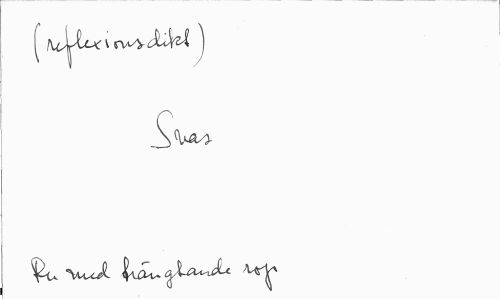 (reflexionsdikt)
Svar
med trängtande rop